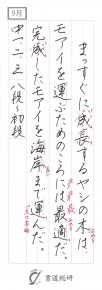 9月
まっすぐに成長するヤシの木は、
モアイを運ぶためのころには最適だ。
完成したモアイを海岸まで運んだ。
中一、二、三 八段〜初段
書道総研